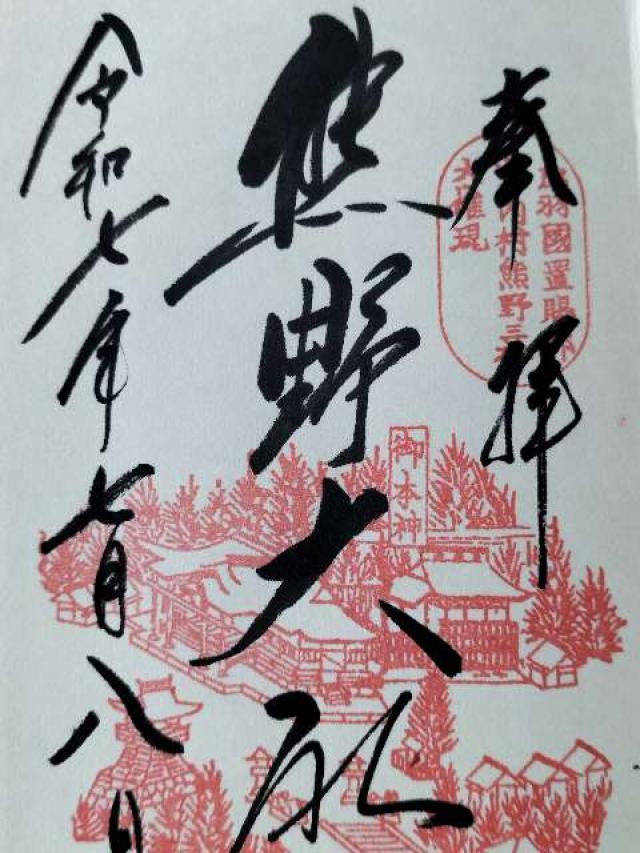 奉拝
羽國置賜
内村熊野三
大権現
御本神
熊野大社
令和七年七月八日